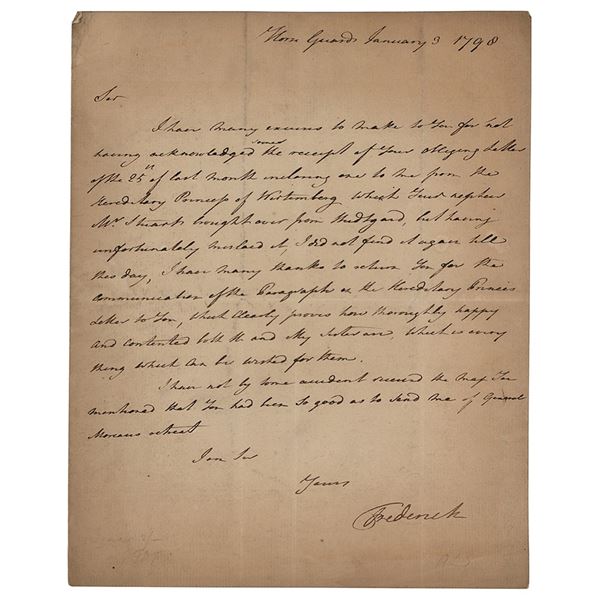 Horse Guards January 3 1798
Sir
I have many excuses to make to You for not
having acknowledged sooner the receipt of Your obliging Letter
of the 25th of last month inclosing one to me from the
Hereditary Princess of Wirtemberg which Your nephew
Mr. Stuart brought over from Studtgard, but having
unfortunately mislaid it, I did not find it again till
this day, I have many thanks to return You for the
communication of the Paragraph in the Hereditary Princes
Letter to You, which clearly proves how thoroughly happy
and contented both He and My Sister are, which is every
thing which can be wished for them.
I have not by some accident received the map You
mentioned that You had been so good as to send me of General
Moreaus retreat
I am Sir
Yours
Frederick